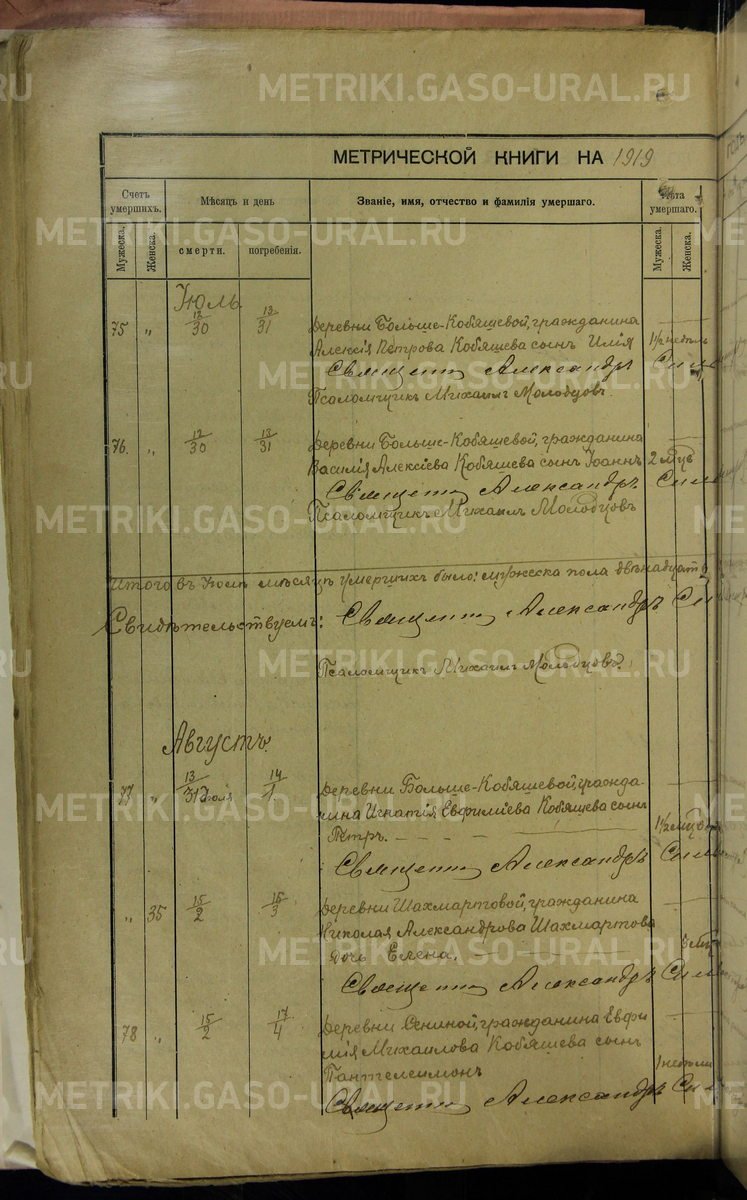 METRIKI.GASO-URAL.RU
МЕТРИЧЕСКОЙ КНИГИ НА 1919
Счетъ умершихъ.
Мѣсяцъ и день
Званіе, имя, отчество и фамилія умершаго.
Лѣта умершаго.
Мужеска.
Женска.
смерти.
погребенія.
Мужеска.
Женска.
Іюль
75 „ 12/30 13/31 Деревни Больше-Кобяшевой, гражданина
Алексія Петрова Кобяшева сынъ Илія 1½ недѣль
Священ Александръ
Псаломщикъ Михаилъ Молобцовъ.
76. „ 12/30 13/31 Деревни Больше-Кобяшевой, гражданина
Василія Алексіева Кобяшева сынъ Іоаннъ 2 мѣс
Священ Александръ
Псаломщикъ Михаилъ Молобцовъ
Итого въ Іюлѣ мѣсяцѣ умершихъ было: мужеска пола двѣнадцать
Свидѣтельствуемъ: Священ Александръ
Псаломщикъ Михаилъ Молобцовъ.
Августъ.
77 „ 13/31 Іюля 14/1 Деревни Больше-Кобяшевой, гражда-
нина Игнатія Евфиміева Кобяшева сынъ
Петръ. 1½
Священ Александръ
„ 35 15/2 16/3 Деревни Шахмартовой, гражданина
Николая Александрова Шахмартова
дочь Елена.
Священ Александръ
78 „ 15/2 17/4 Деревни Сениной, гражданина Евфи
мія Михаилова Кобяшева сынъ
Пантелеимонъ 1 недѣли
Священ Александръ